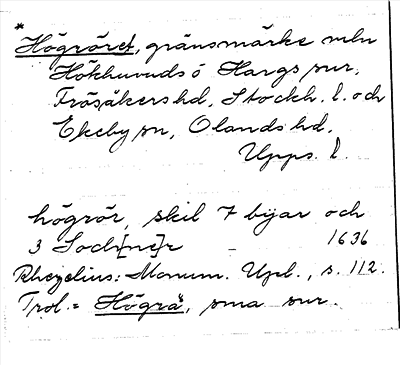 *
Högröret, gränsmärke mln
Hökhuvuds o Hargs snr,
Frösåkers hd, Stockh. l. och
Ekeby sn, Olands hd,
Upps. l.
högrör, skil 7 bÿar och
3 Soch[ne]r – 1636
Rhezelius: Monum. Upl., s. 112.
Trol. = Högrä, sma snr.